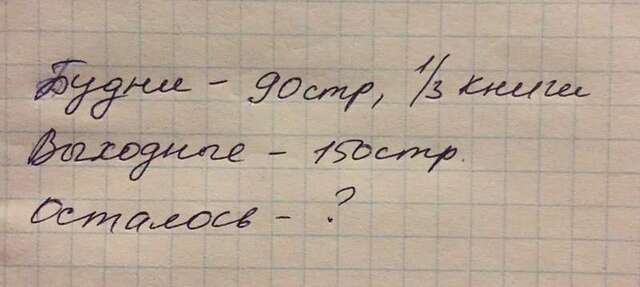 Будни - 90стр, 1/3 книги
Выходные - 150стр.
Осталось - ?